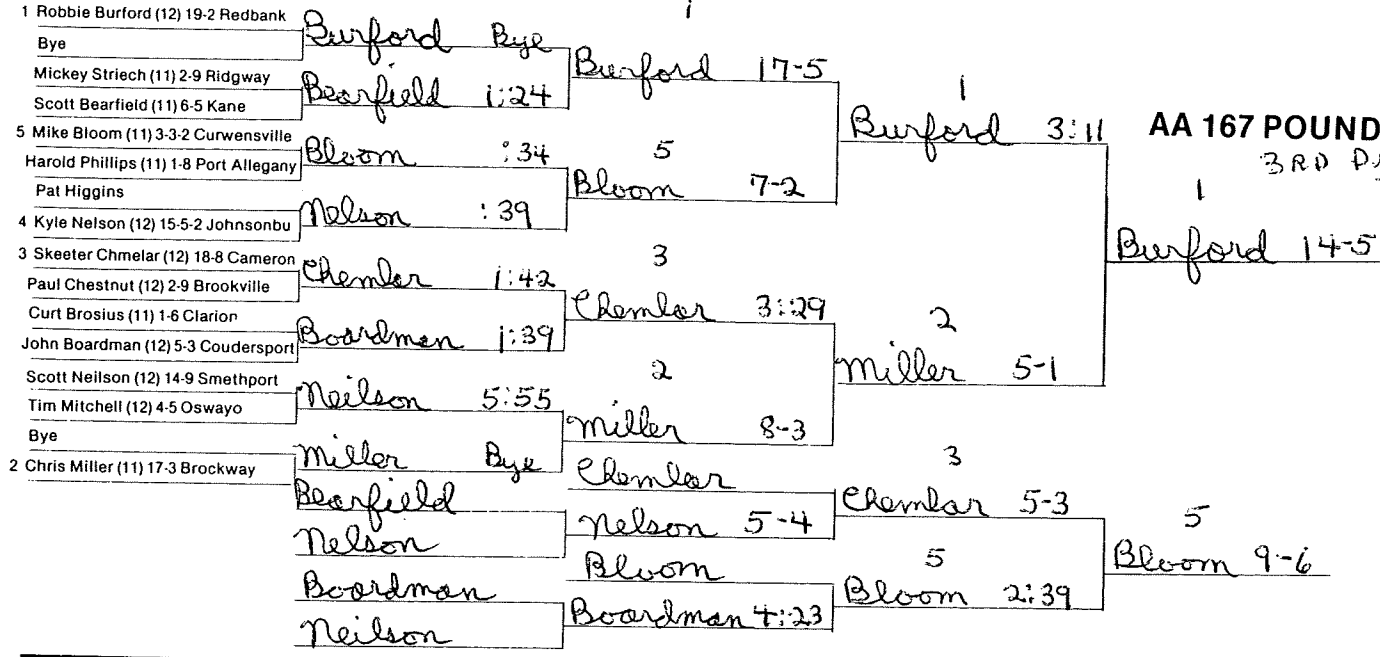 1 Robbie Burford (12) 19-2 Redbank
Bye
Mickey Striech (11) 2-9 Ridgway
Scott Bearfield (11) 6-5 Kane
5 Mike Bloom (11) 3-3-2 Curwensville
Harold Phillips (11) 1-8 Port Allegany
Pat Higgins
4 Kyle Nelson (12) 15-5-2 Johnsonbu
3 Skeeter Chmelar (12) 18-8 Cameron
Paul Chestnut (12) 2-9 Brookville
Curt Brosius (11) 1-6 Clarion
John Boardman (12) 5-3 Coudersport
Scott Neilson (12) 14-9 Smethport
Tim Mitchell (12) 4-5 Oswayo
Bye
2 Chris Miller (11) 17-3 Brockway
Burford Bye
Bearfield 1:24
Bloom :34
Nelson :39
Chemlar 1:42
Boardman 1:39
Neilson 5:55
Miller Bye
Bearfield
Nelson
Boardman
Neilson
1
Burford 17-5
5
Bloom 7-2
3
Chemlar 3:29
2
Miller 8-3
Chemlar
Nelson 5-4
Bloom
Boardman 4:23
1
Burford 3:11
2
Miller 5-1
3
Chemlar 5-3
5
Bloom 2:39
AA 167 POUND
3RD
1
Burford 14-5
5
Bloom 9-6